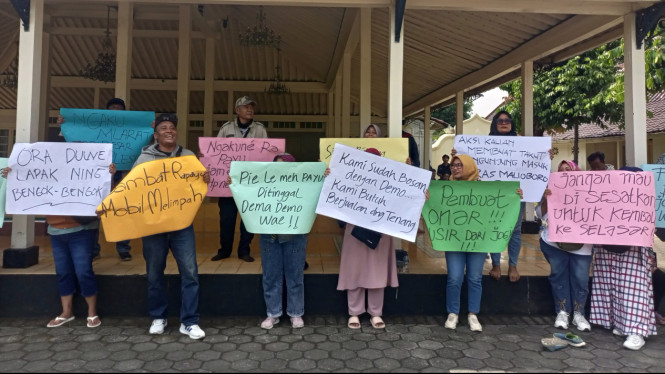 NGAKU MLARAT
ORA DUWE
LAPAK NING
BENGOK-BENGOK
Sambat Rapayu
Mobil Melimpah
Ngakune Ra
PAYU
Pie Le meh PAYU
Ditinggal
Demo Demo
Wae !!
Kami Sudah Bosan
dengan Demo...
Kami Butuh
Berjualan dng Tenang
Pembuat
ONAR !!!
USIR DARI JOGJA
AKSI KALIAN
MEMBUAT TAKUT
PENGUNJUNG MASUK
MALIOBORO
JANGAN MAU
DI SESATKAN
UNTUK KEMBALI
KE SELASAR